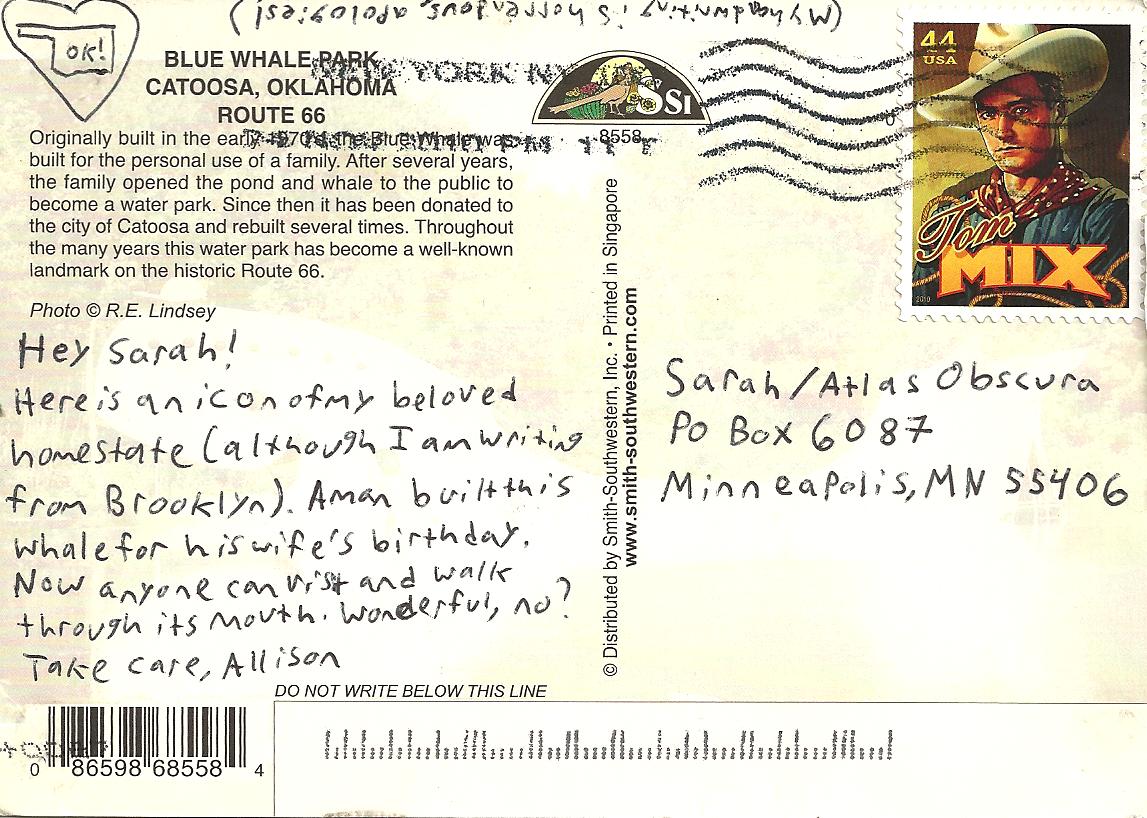 (My handwriting is horrendous, apologies!)
OK!
BLUE WHALE PARK
CATOOSA, OKLAHOMA
ROUTE 66
Originally built in the early 1970's the Blue Whale was
built for the personal use of a family. After several years,
the family opened the pond and whale to the public to
become a water park. Since then it has been donated to
the city of Catoosa and rebuilt several times. Throughout
the many years this water park has become a well-known
landmark on the historic Route 66.
Photo © R.E. Lindsey
NEW YORK NY
Hey Sarah!
Here is an icon of my beloved
homestate (although I am writing
from Brooklyn). A man built this
whale for his wife's birthday.
Now anyone can visit and walk
through its mouth. Wonderful, no?
Take care, Allison
SSI
8558
© Distributed by Smith-Southwestern, Inc. • Printed in Singapore
www.smith-southwestern.com
44
USA
Tom
MIX
2010
Sarah/Atlas Obscura
PO Box 6087
Minneapolis, MN 55406
DO NOT WRITE BELOW THIS LINE
0 86598 68558 4